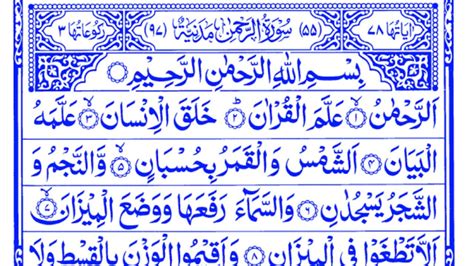 اٰيَاتُهَا ٧٨ (٥٥) سُوْرَةُ الرَّحْمٰنِ مَدَنِيَّةٌ (٩٧) رُكُوْعَاتُهَا ٣
بِسْمِ اللهِ الرَّحْمٰنِ الرَّحِيْمِ
اَلرَّحْمٰنُ ۙ﴿١﴾ عَلَّمَ الْقُرْاٰنَ ؕ﴿٢﴾ خَلَقَ الْاِنْسَانَ ۙ﴿٣﴾ عَلَّمَهُ
الْبَيَانَ ﴿٤﴾ اَلشَّمْسُ وَ الْقَمَرُ بِحُسْبَانٍ ۪﴿٥﴾ وَّ النَّجْمُ وَ
الشَّجَرُ يَسْجُدٰنِ ﴿٦﴾ وَ السَّمَآءَ رَفَعَهَا وَ وَضَعَ الْمِيْزَانَ ۙ﴿٧﴾
اَلَّا تَطْغَوْا فِي الْمِيْزَانِ ﴿٨﴾ وَ اَقِيْمُوا الْوَزْنَ بِالْقِسْطِ وَ لَا